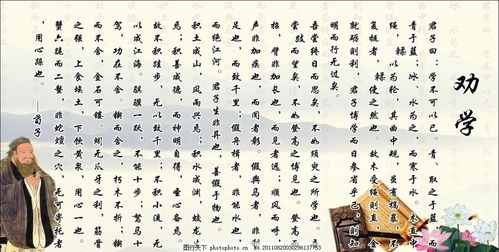 劝学
君子曰：学不可以已。青，取之于蓝，而
青于蓝；冰，水为之，而寒于水。木直中
绳，輮以为轮，其曲中规。虽有槁暴，不
复挺者，輮使之然也。故木受绳则直，金
就砺则利，君子博学而日参省乎己，则知
明而行无过矣。
吾尝终日而思矣，不如须臾之所学也，吾
尝跂而望矣，不如登高之博见也。登高而
招，臂非加长也，而见者远；顺风而呼，
声非加疾也，而闻者彰。假舆马者，非利
足也，而致千里；假舟楫者，非能水也，
而绝江河。君子生非异也，善假于物也。
积土成山，风雨兴焉；积水成渊，蛟龙生
焉；积善成德，而神明自得，圣心备焉。
故不积跬步，无以致千里；不积小流，无
以成江海。骐骥一跃，不能十步；驽马十
驾，功在不舍。锲而舍之，朽木不折；锲
而不舍，金石可镂。蚓无爪牙之利，筋骨
之强，上食埃土，下饮黄泉，用心一也。
蟹六跪而二螯，非蛇蟮之穴，无可寄托者
，用心躁也。 ——荀子